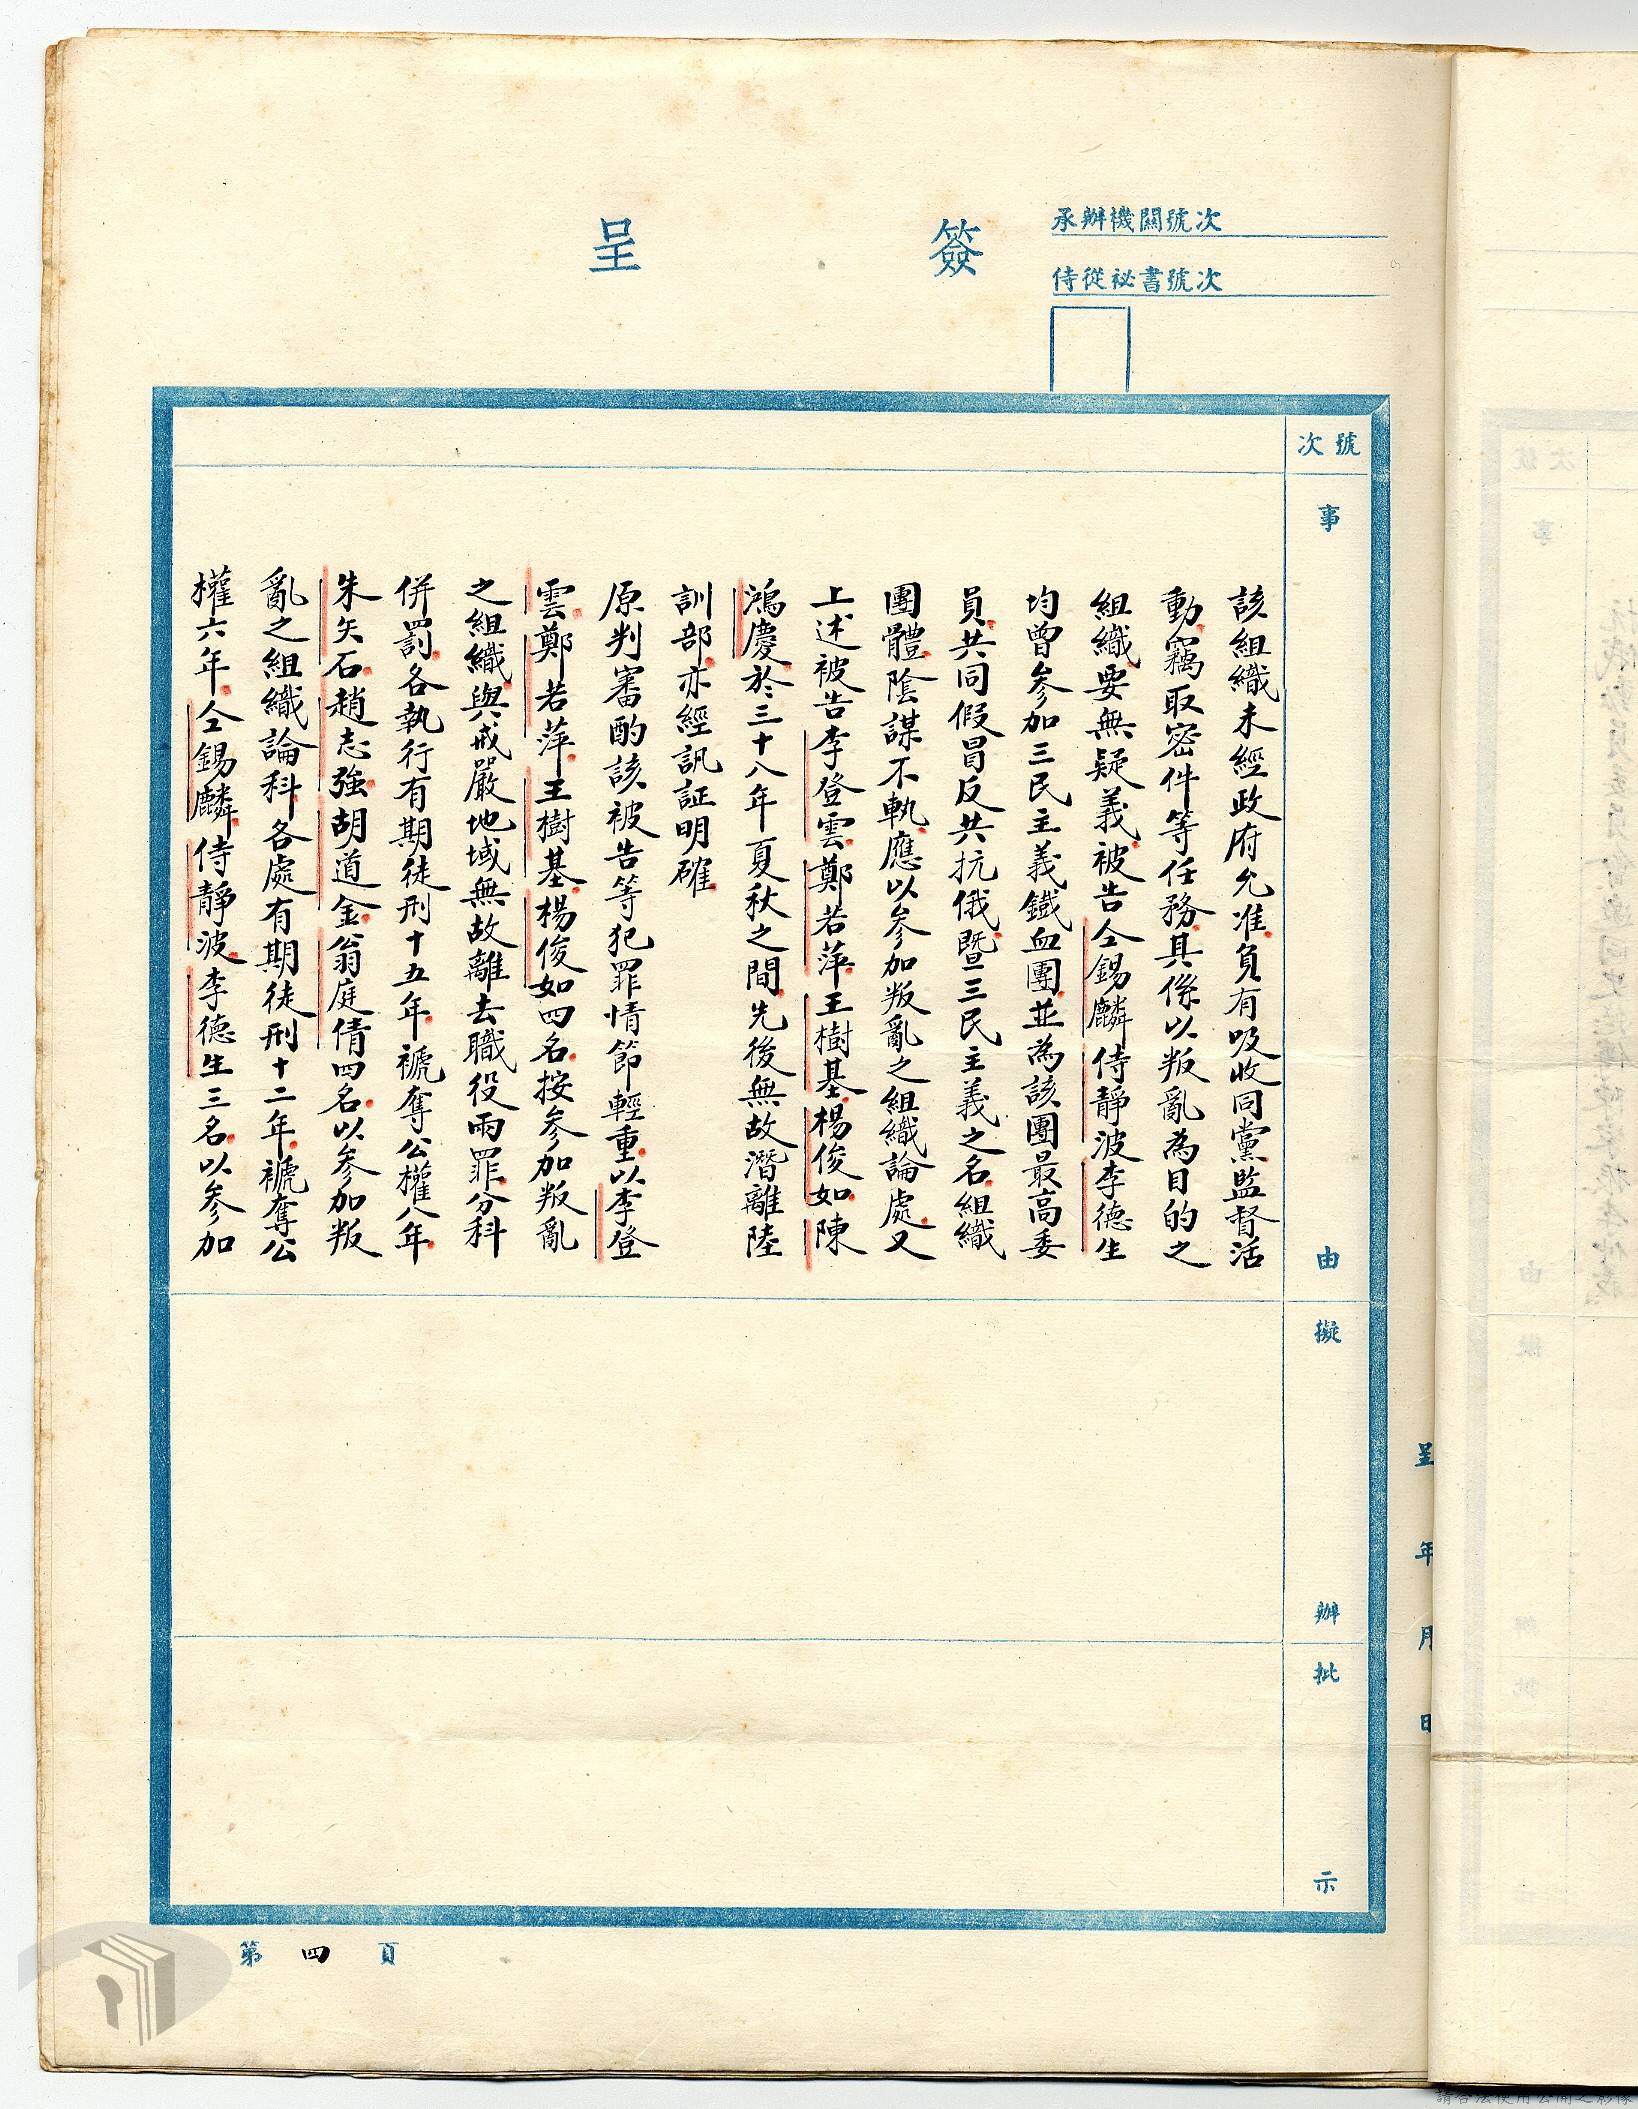 簽呈
承辦機關號次
侍從祕書號次
號次
事由
擬辦
批示
該組織未經政府允准負有吸收同黨監督活
動竊取密件等任務其係以叛亂為目的之
組織要無疑義被告仝錫麟侍靜波李德生
均曾參加三民主義鐵血團並為該團最高委
員共同假冒反共抗俄暨三民主義之名組織
團體陰謀不軌應以參加叛亂之組織論處又
上述被告李登雲鄭若萍王樹基楊俊如陳
鴻慶於三十八年夏秋之間先後無故潛離陸
訓部亦經訊証明確
原判審酌該被告等犯罪情節輕重以李登
雲鄭若萍王樹基楊俊如四名按參加叛亂
之組織與戒嚴地域無故離去職役兩罪分科
併罰各執行有期徒刑十五年褫奪公權八年
朱矢石趙志強胡道金翁庭倩四名以參加叛
亂之組織論科各處有期徒刑十二年褫奪公
權六年仝錫麟侍靜波李德生三名以參加
呈 年 月 日
第四頁